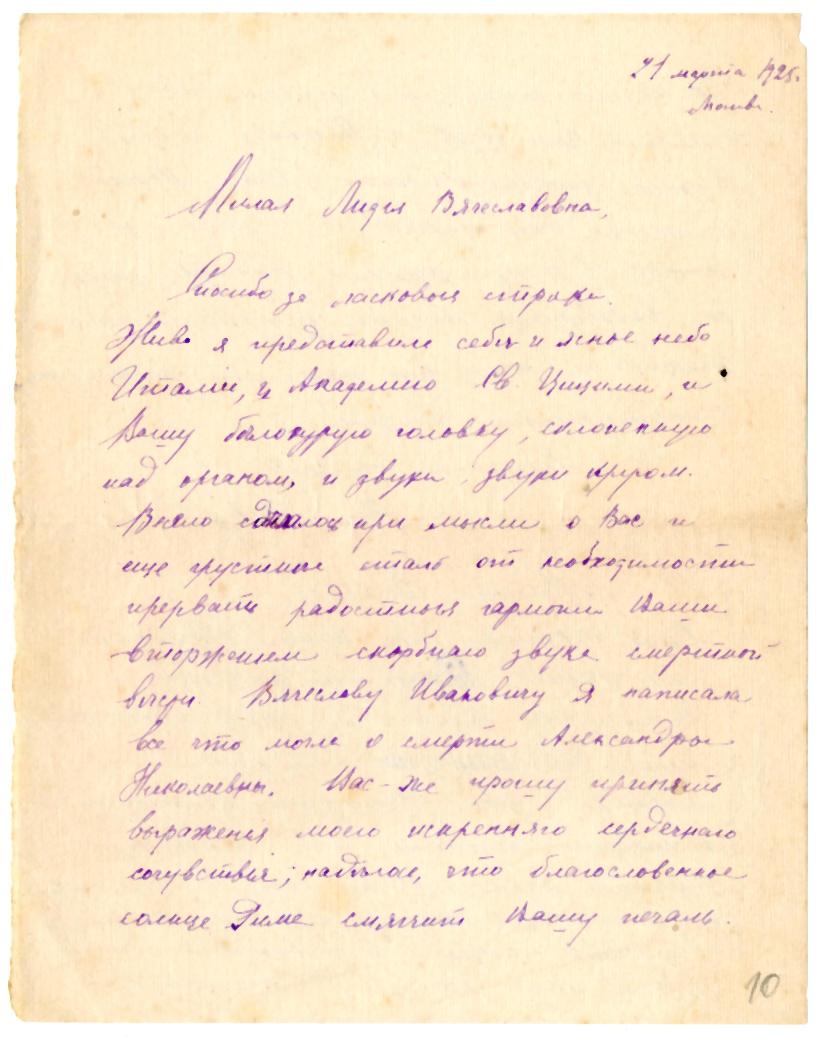 21 марта 1925.
Москва.
Милая Лидия Вячеславовна,
Спасибо за ласковыя строки.
Живо я представила себѣ и ясное небо
Италіи, и Академию Св. Цицилии, и
Вашу бѣлокурую головку, склоненную
над органом, и звуки, звуки кругом.
Весело сдѣлалось при мысли о Вас и
еще грустнее стало от необходимости
прервать радостныя гармонии Ваши
вторженiем скорбнаго звука смертной
вѣсти. Вячеславу Ивановичу я написала
все что могла о смерти Александры
Николаевны. Вас-же прошу принять
выражения моего искренняго сердечнаго
сочувствiя; надѣюсь, что благословенное
солнце Рима смягчит Вашу печаль.
10